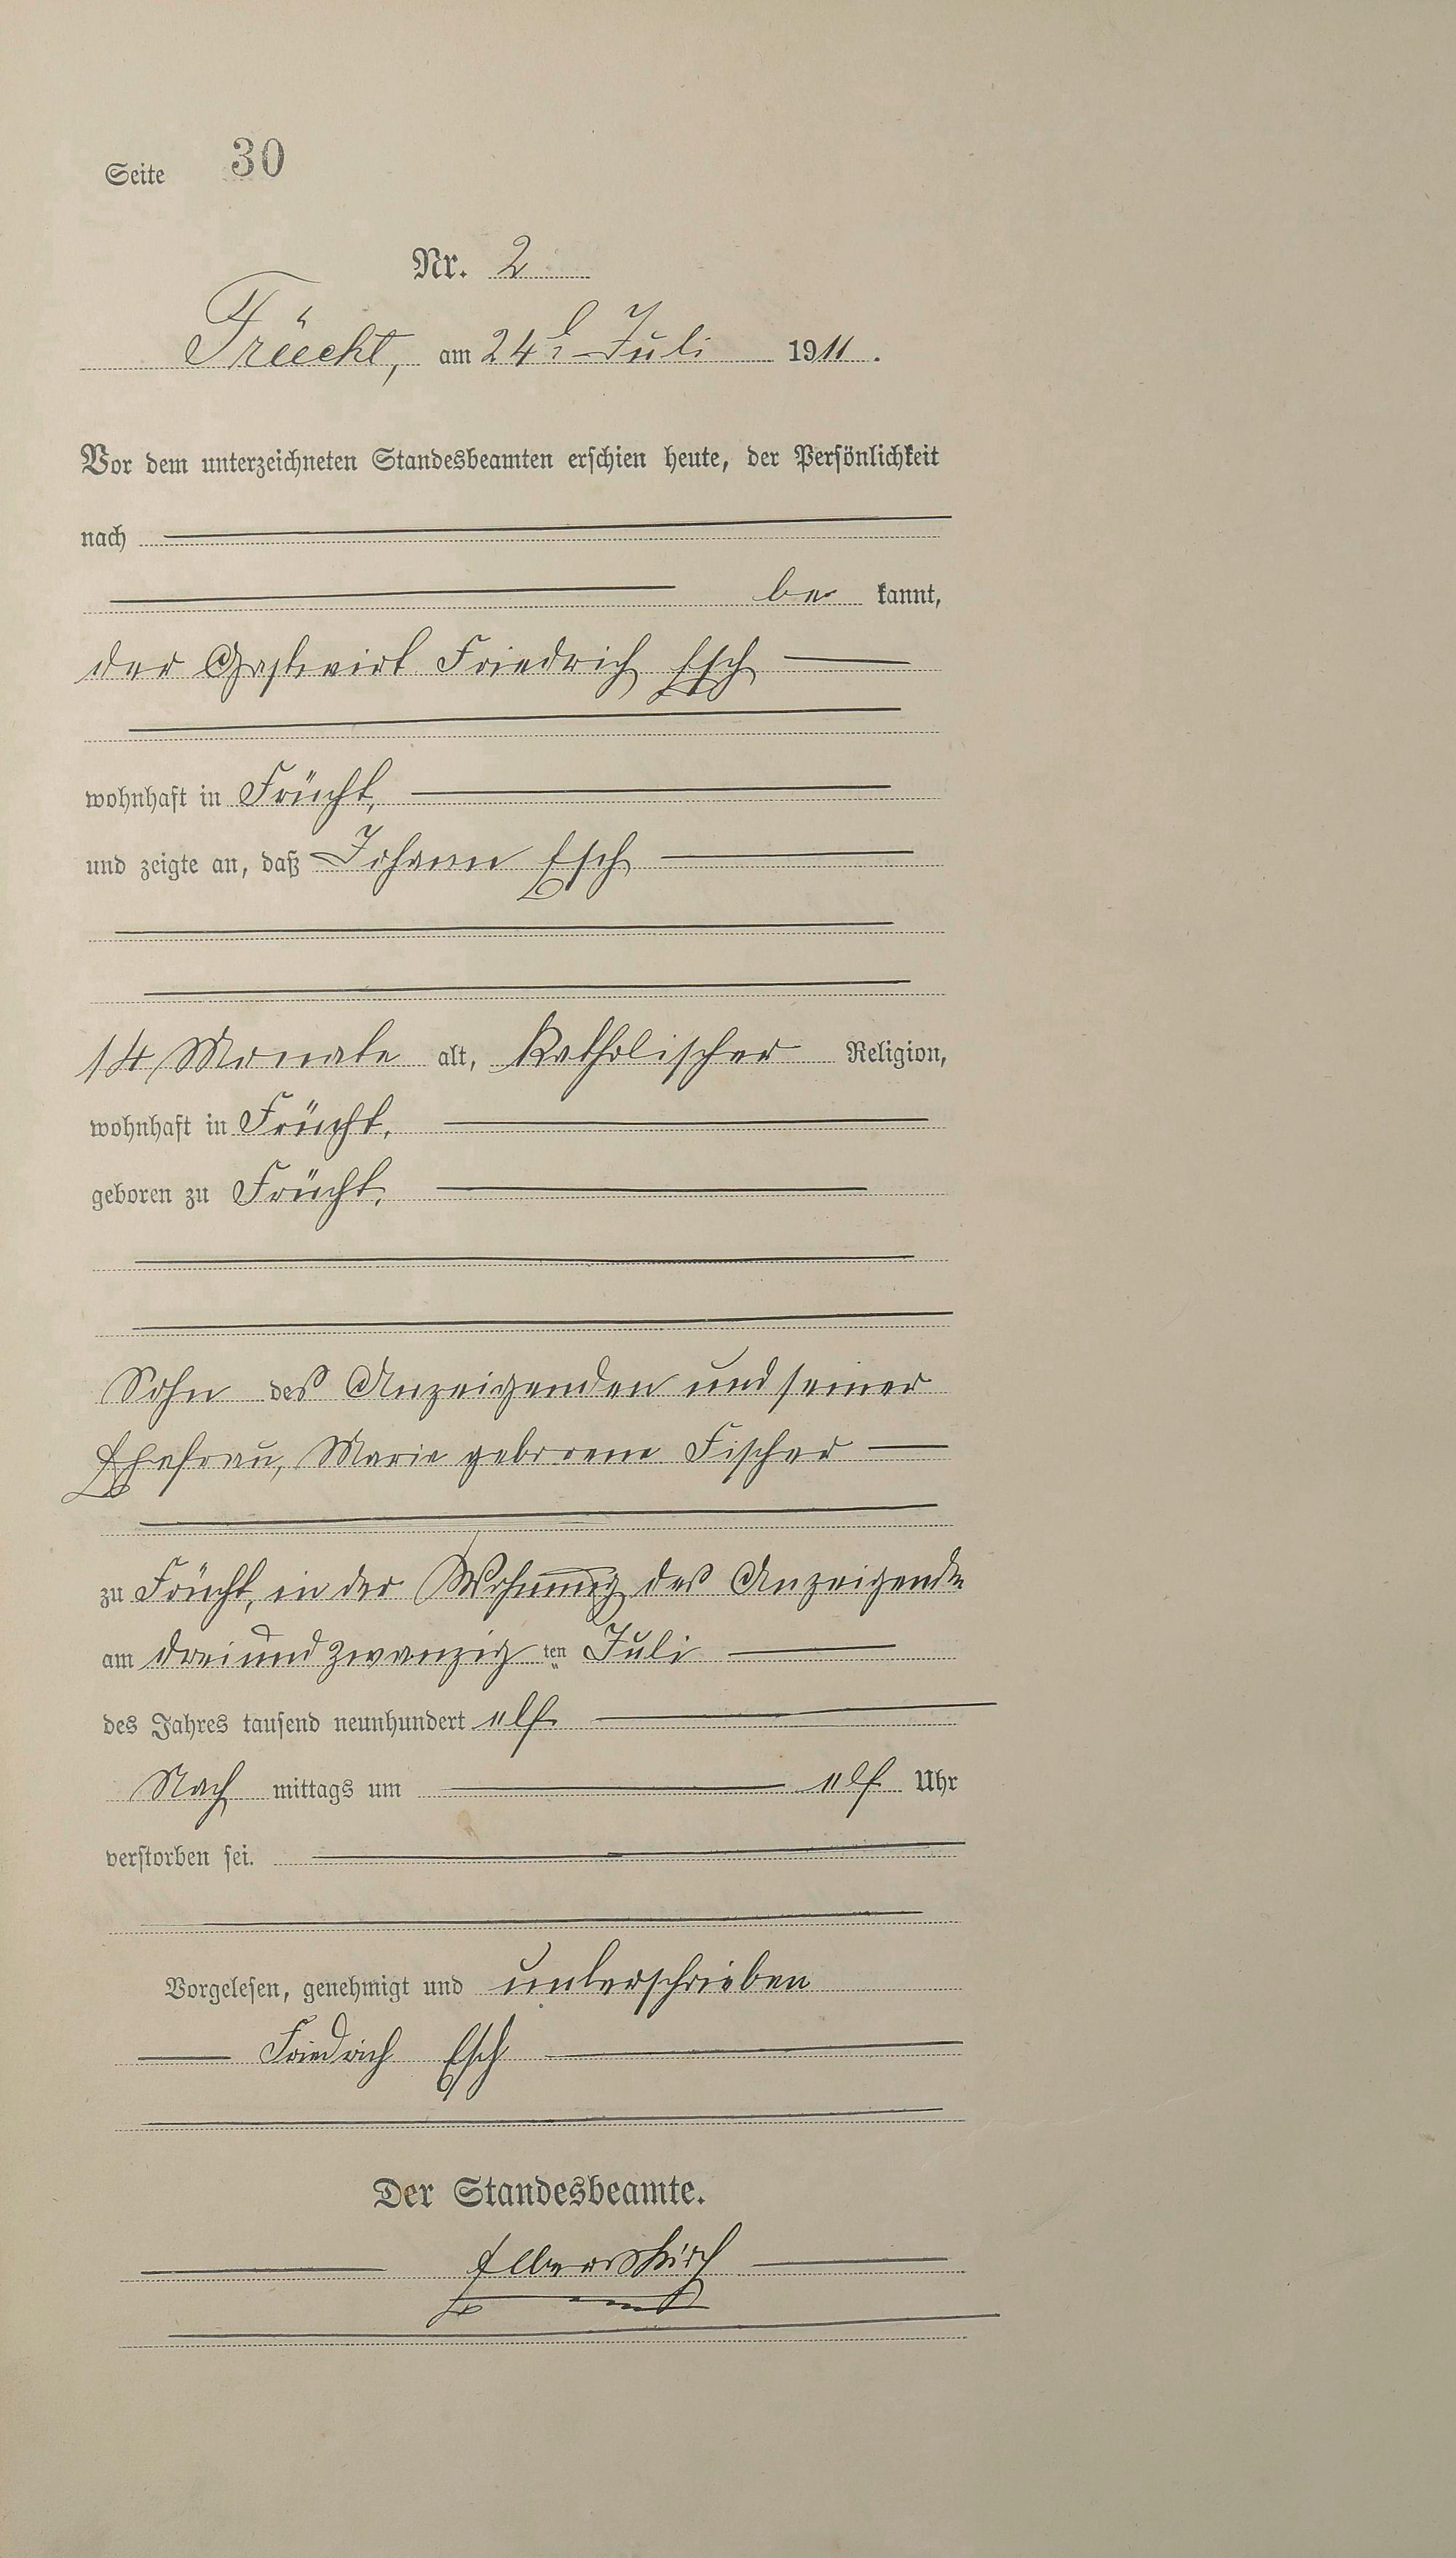 Seite 30
Nr. 2
Frücht, am 24t Juli 1911.
Vor dem unterzeichneten Standesbeamten erschien heute, der Persönlichkeit
nach
be kannt,
der Gastwirt Friedrich Esch
wohnhaft in Frücht,
und zeigte an, daß Johann Esch
14 Monate alt, katholischer Religion,
wohnhaft in Frücht,
geboren zu Frücht,
Sohn des Anzeigenden und seiner
Ehefrau, Marie geborene Fischer
zu Frücht, in der Wohnung des Anzeigenden
am dreiundzwanzig ten Juli
des Jahres tausend neunhundert elf
Nach mittags um elf Uhr
verstorben sei.
Vorgelesen, genehmigt und unterschrieben
Friedrich Esch
Der Standesbeamte.
Elberskirch